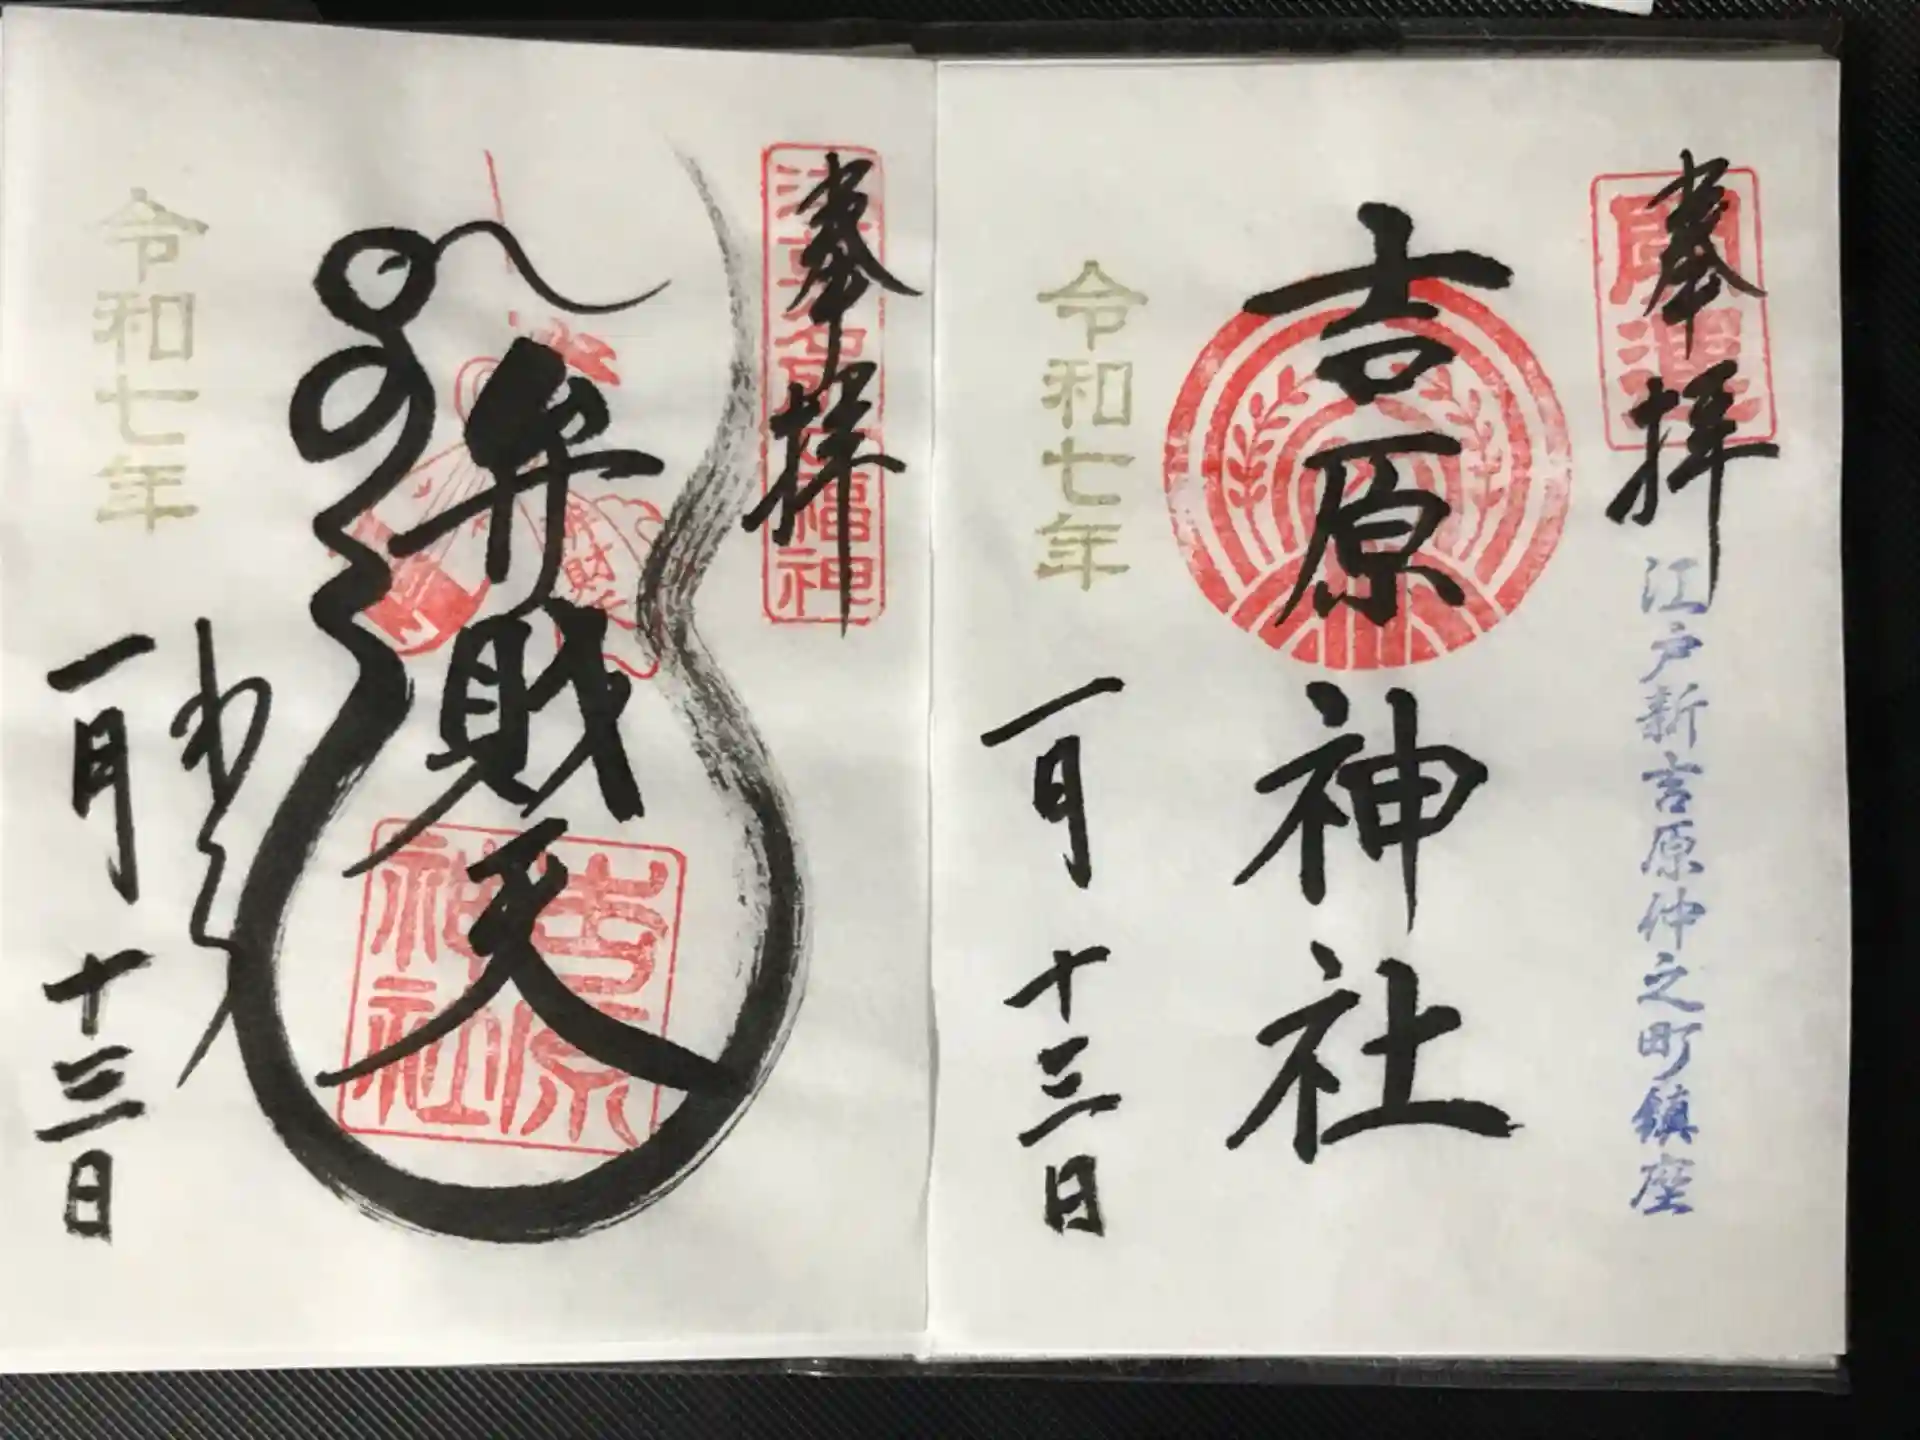 奉拝
開運
江戸新吉原仲之町鎮座
吉原神社
令和七年
一月十三日
奉拝
浅草名所七福神
弁財天
弁財天
吉原
神社
令和七年
一月十三日